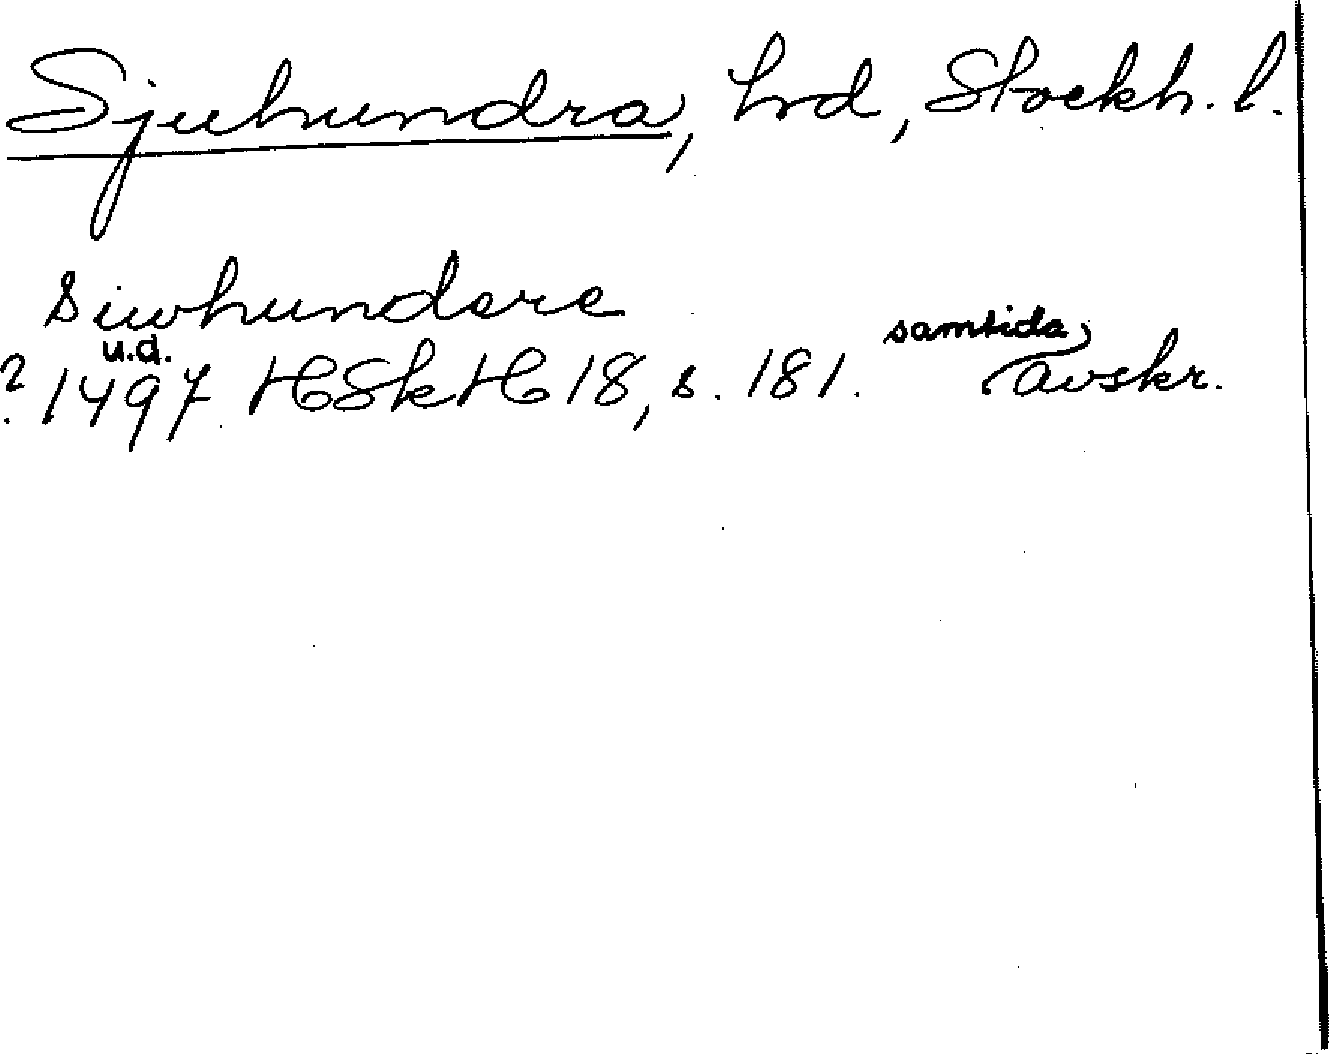 Sjuhundra, hrd, Stockh. l.
Siwhundare
u.d. samtida
? 1497 HSkH 18, s. 181. avskr.